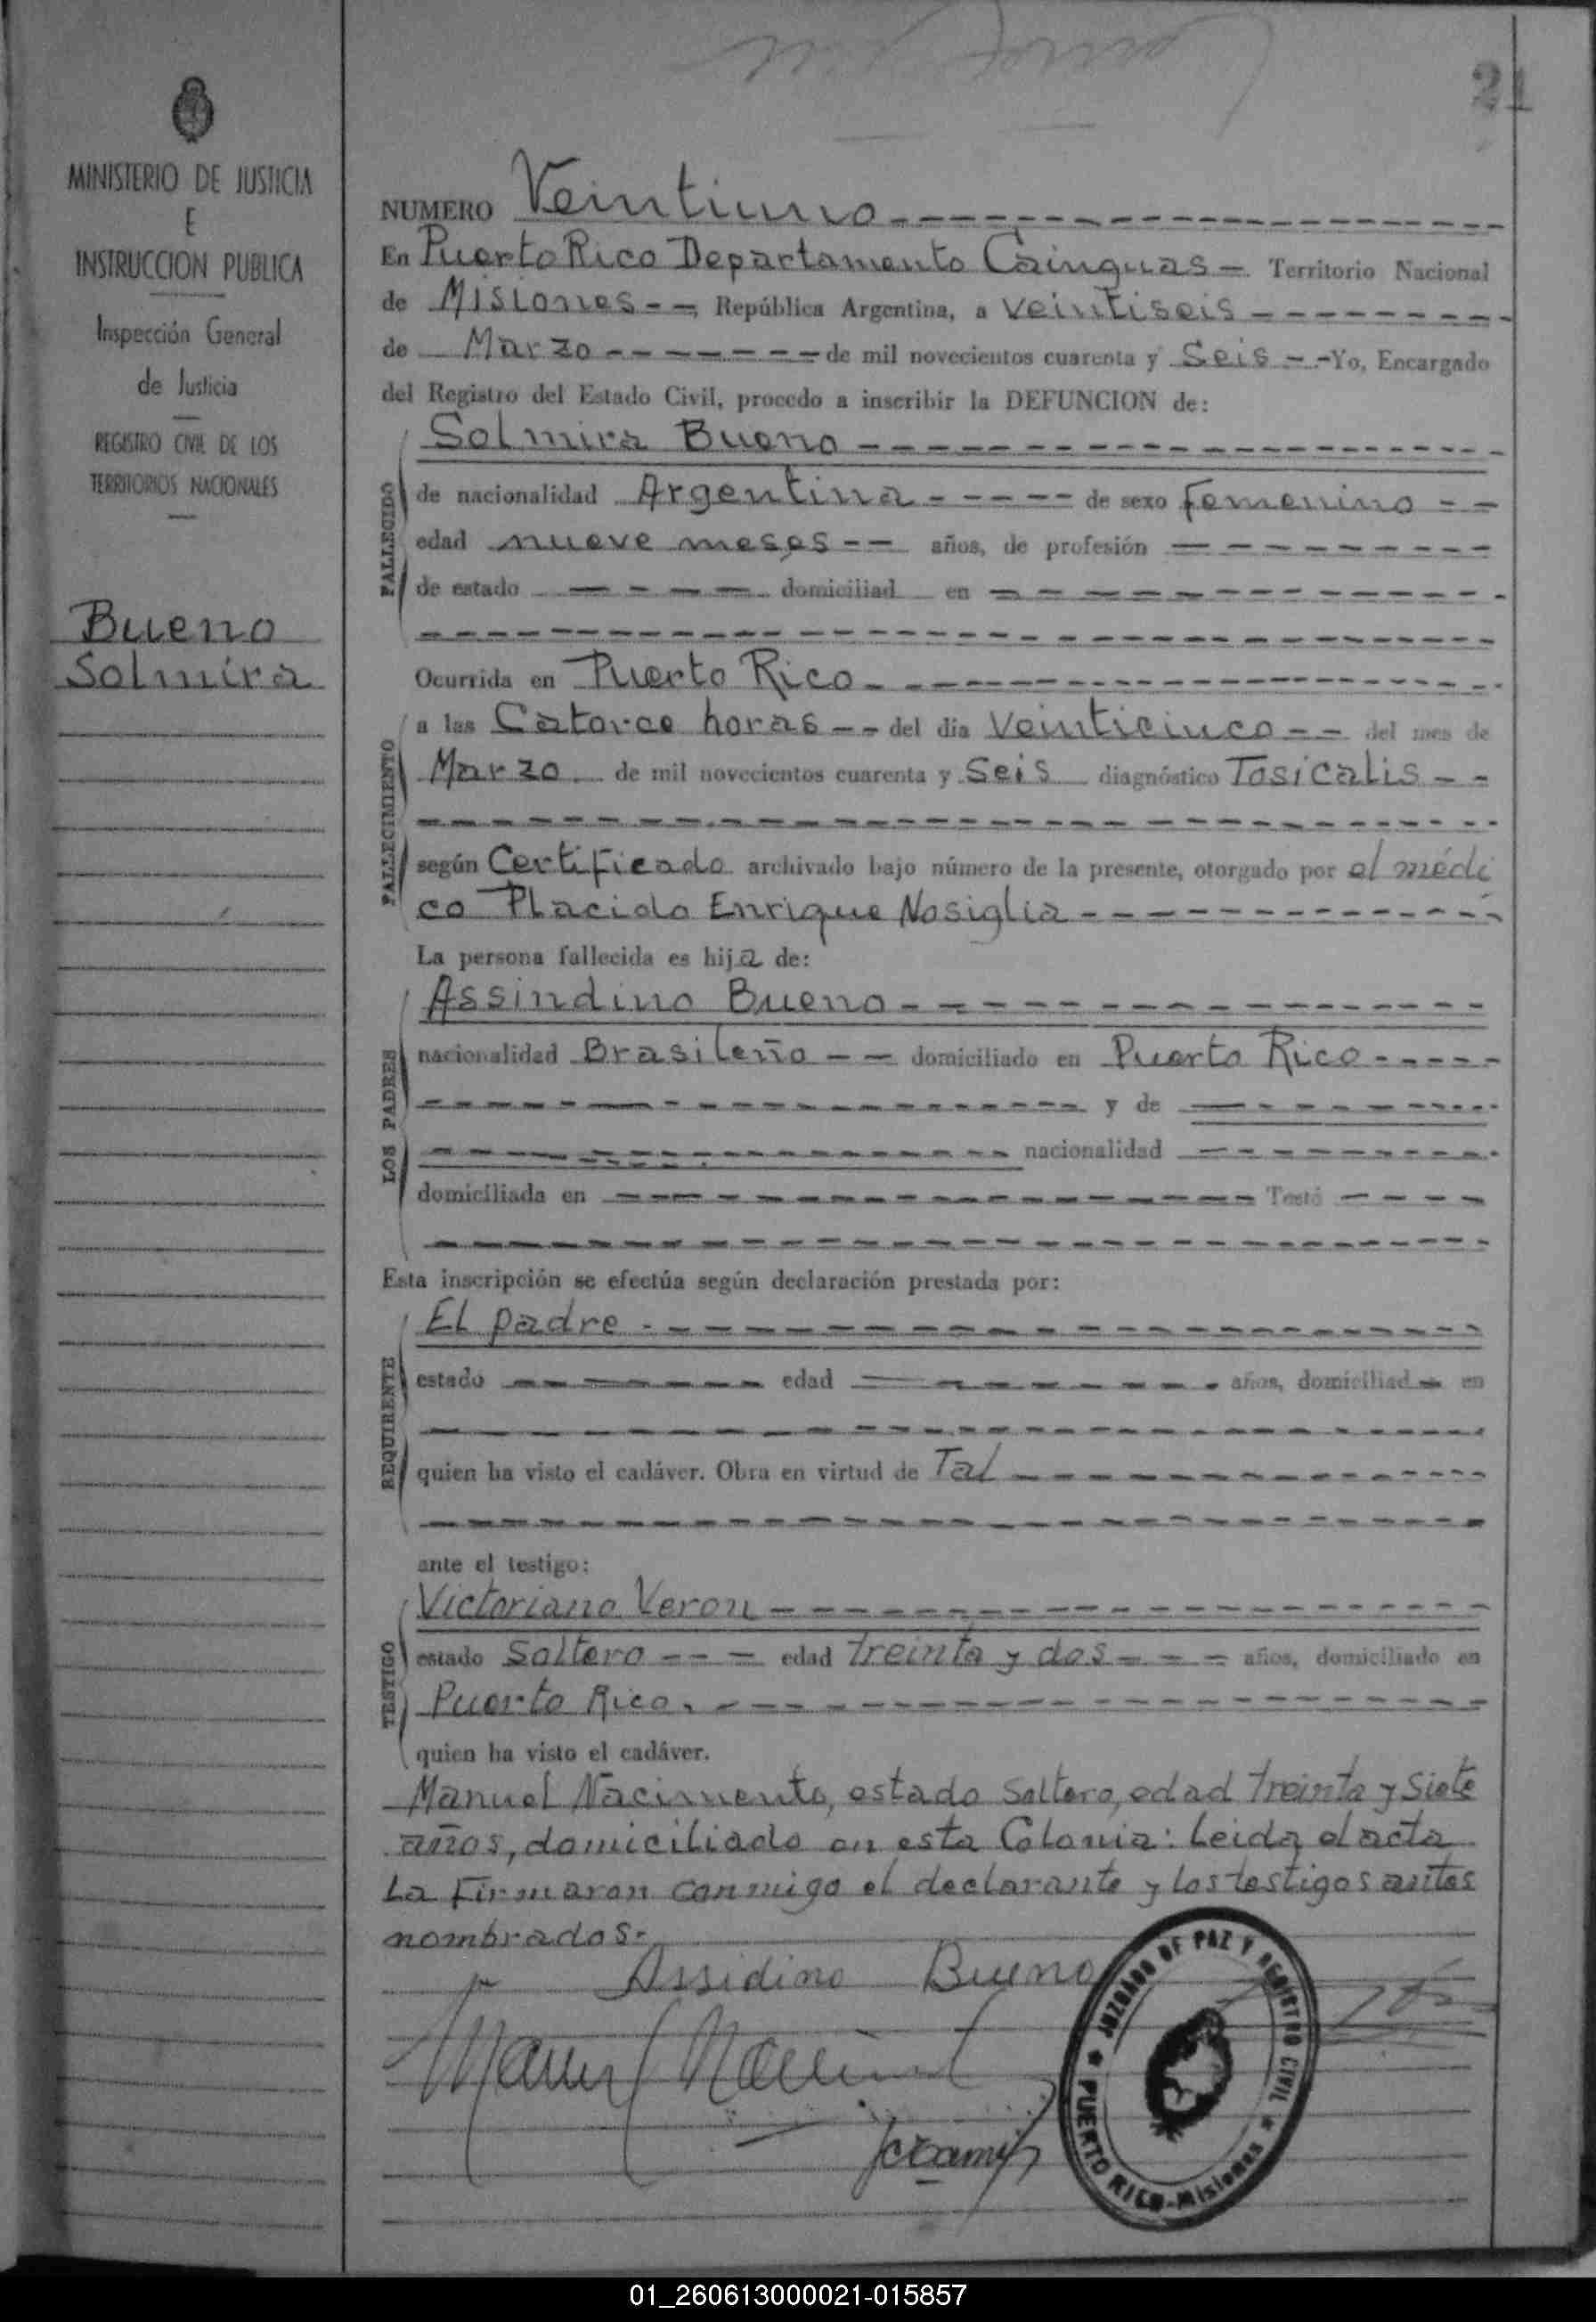 21
MINISTERIO DE JUSTICIA
E
INSTRUCCION PUBLICA
Inspección General
de Justicia
REGISTRO CIVIL DE LOS
TERRITORIOS NACIONALES
Bueno
Solmira
NUMERO Veintiuno
En Puerto Rico Departamento Cainguas - Territorio Nacional
de Misiones - -, República Argentina, a veintiseis
de Marzo de mil novecientos cuarenta y Seis - - Yo, Encargado
del Registro del Estado Civil, procedo a inscribir la DEFUNCION de:
Solmira Bueno
FALLECIDO
de nacionalidad Argentina de sexo femenino - -
edad nueve meses - - años, de profesión
de estado domiciliad en
Ocurrida en Puerto Rico
FALLECIMIENTO
a las Catorce horas - - del dia Veinticinco - - del mes de
Marzo de mil novecientos cuarenta y Seis diagnóstico Tosicalis - -
según Certificado archivado bajo número de la presente, otorgado por el médi
co Placido Enrique Nosiglia
La persona fallecida es hija de:
LOS PADRES
Assindino Bueno
nacionalidad Brasileño - - domiciliado en Puerto Rico
y de
nacionalidad
domiciliada en Testó
Esta inscripción se efectúa según declaración prestada por:
REQUIRENTE
El padre
estado edad años, domiciliad en
quien ha visto el cadáver. Obra en virtud de Tal
ante el testigo:
TESTIGO
Victoriano Veron
estado Soltero - - - edad treinta y dos - - - años, domiciliado en
Puerto Rico.
quien ha visto el cadáver.
Manuel Nacimento, estado Soltero, edad treinta y Siete
años, domiciliado en esta Colonia: Leida el acta
La Firmaron conmigo el declarante y los testigos antes
nombrados.-
Assidino Bueno
JUZGADO DE PAZ Y REGISTRO CIVIL
PUERTO RICO-Misiones
01_260613000021-015857